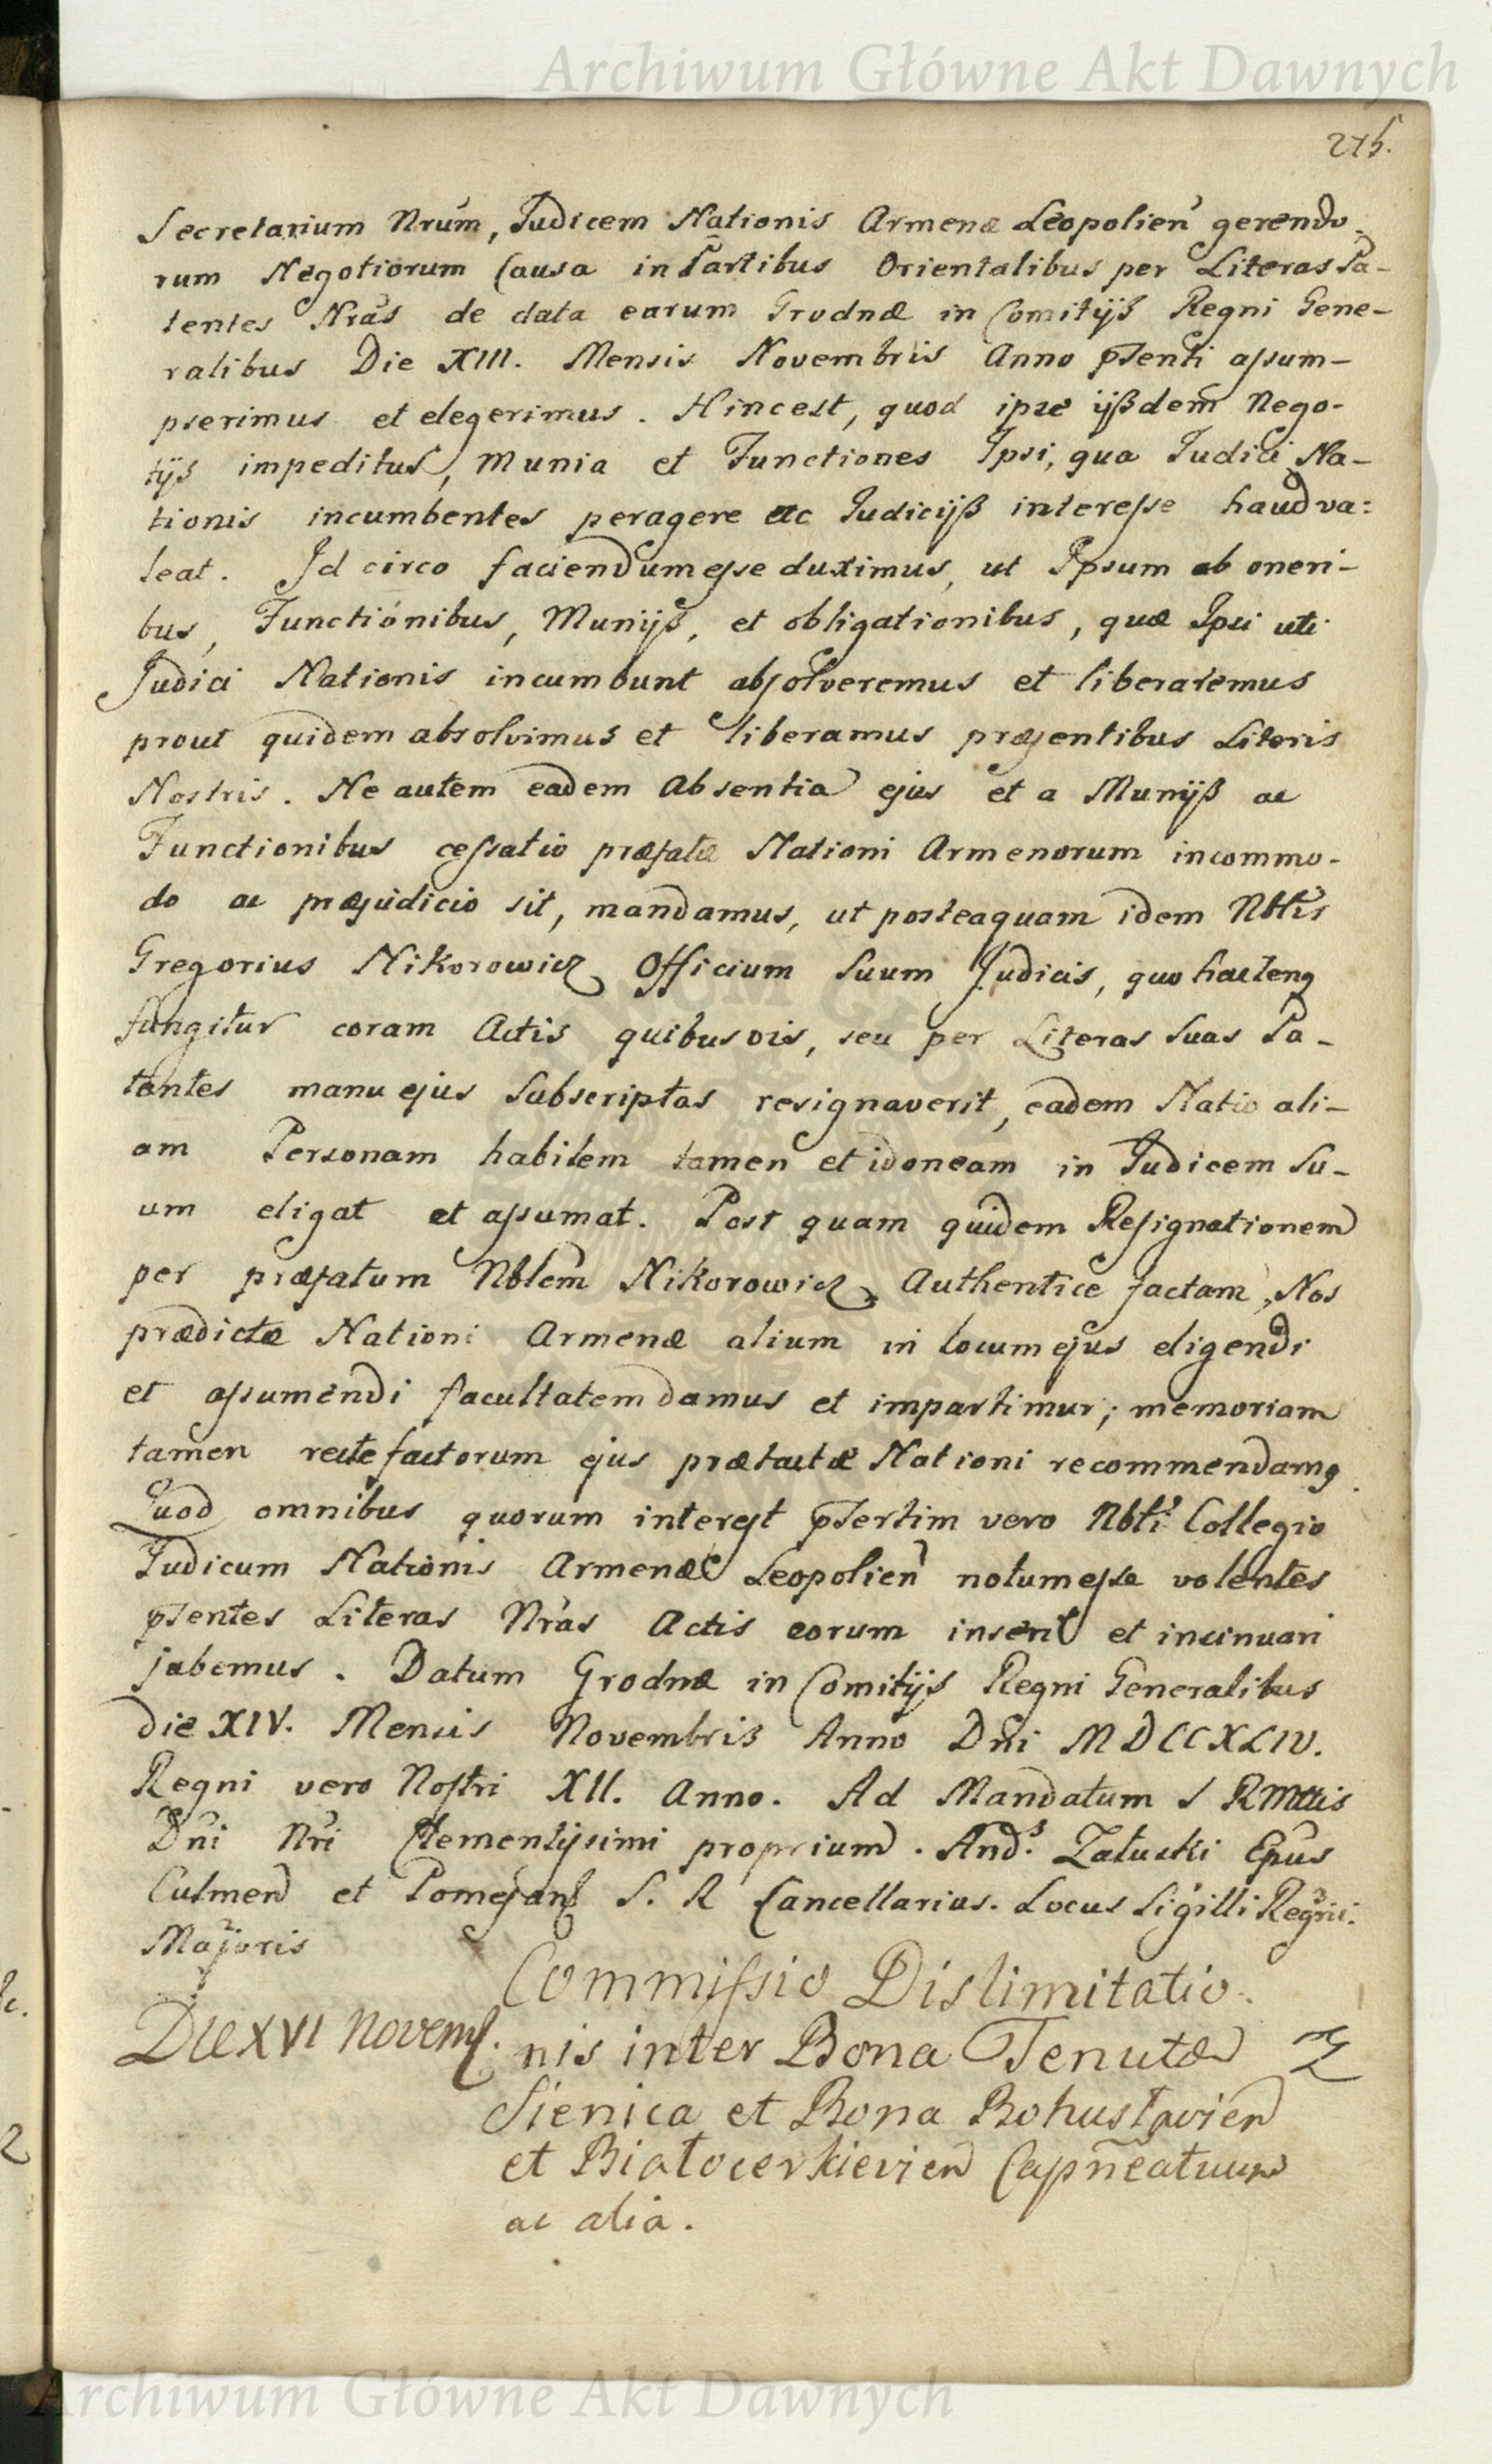 Archiwum Główne Akt Dawnych
275.
Secretarium Nrum, Judicem Nationis Armenæ Leopolien gerendo-
rum Negotiorum Causa in Partibus Orientalibus per Literas Pa-
tentes Nras de data earum Grodnæ in Comitijs Regni Gene-
ralibus Die XIII. Mensis Novembris Anno pnti assum-
pserimus et elegerimus. Hinc est, quod ipse ijsdem Nego-
tijs impeditus, munia et Functiones Ipsi, qua Judici Na-
tionis incumbentes peragere ac Judicijs interesse haud va:
leat. Id circo faciendum esse duximus, ut Ipsum ab oneri-
bus, Functionibus, Munijs, et obligationibus, quæ Ipsi uti
Judici Nationis incumbunt absolveremus et liberaremus
prout quidem absolvimus et liberamus præsentibus Literis
Nostris. Ne autem eadem Absentia ejus et a Munijs ac
Functionibus cessatio præfatæ Nationi Armenorum incommo-
do ac præjudicio sit, mandamus, ut posteaquam idem Nblis
Gregorius Nikorowicz Officium Suum Judicis, quo hactenq
fungitur coram Actis quibusvis, seu per Literas Suas Pa-
tentes manu ejus Subscriptas resignaverit, eadem Natio ali-
am Personam habilem tamen et idoneam in Judicem Su-
um eligat et assumat. Post quam quidem Resignationem
per præfatum Nblem Nikorowicz Authentice factam, Nos
prædictæ Nationi Armenæ alium in locum ejus eligendi
et assumendi facultatem damus et impartimur; memoriam
tamen recte factorum ejus prætactæ Nationi recommendamq.
Quod omnibus quorum interest psertim vero Nbli Collegio
Judicum Nationis Armenæ Leopolien notum esse volentes
psentes Literas Nras Actis eorum inseri et insinuari
jubemus. Datum Grodnæ in Comitijs Regni Generalibus
die XIV. Mensis Novembris Anno Dni MDCCXLIV.
Regni vero Nostri XII. Anno. Ad Mandatum S R Mttis
Dni Nri Clementissimi proprium. And.s Załuski Epus
Culmen et Pomesan S. R Cancellarius. Locus Sigilli Regni.
Majoris
Die XVI Novem.
Commissio Dislimitatio-
nis inter Bona Tenutæ
Sienica et Bona Bohusłavien
et Białocerkievien Capneatuum
ac alia.
Archiwum Główne Akt Dawnych